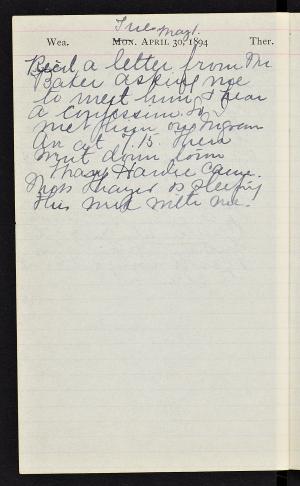 Tues May 1.
Wea. Mon. April 30, 1894 Ther.
Rec'd a letter from Mr
Baker asking me
to meet him & hear
a Confession. So I
met him on
at 7.15. Then
went down town
Mary Hardie came.
Thayer is sleeping
this with me.